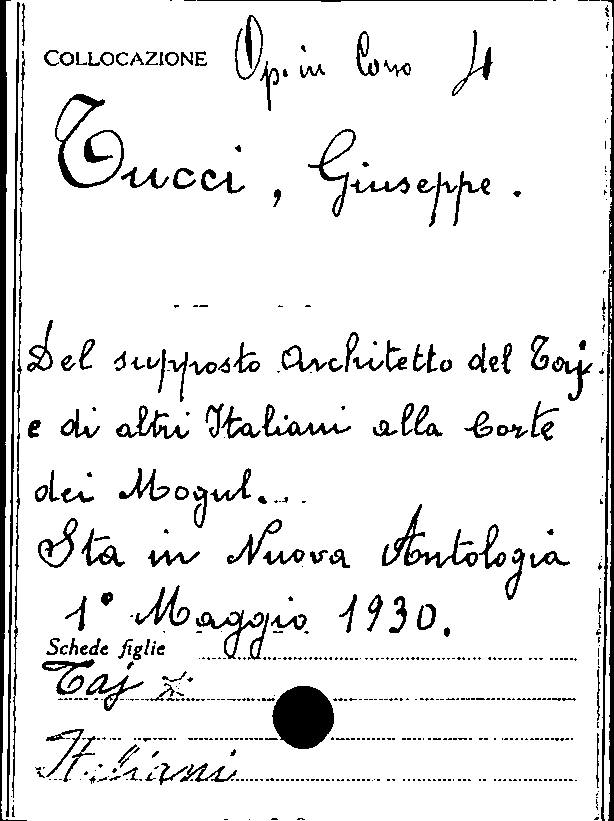 COLLOCAZIONE Op. in Corso 4
Tucci, Giuseppe.
Del supposto Architetto del Taj.
e di altri Italiani alla Corte
dei Mogul...
Sta in Nuova Antologia
1° Maggio 1930.
Schede figlie
Taj
Italiani